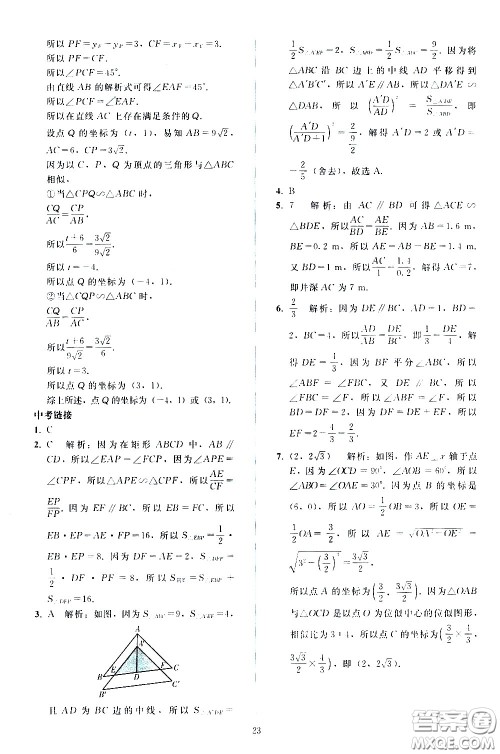 所以 PF = y_P − y_F = 3, CF = x_F − x_C = 3.
所以∠PCF = 45°.
由直线 AB 的解析式可得∠EAF = 45°,
所以∠PCF = ∠EAF.
所以在直线 AC 上存在满足条件的 Q.
设点 Q 的坐标为 (t, 1), 易知 AB = 9√2,
AC = 6, CP = 3√2.
因为以 C, P, Q 为顶点的三角形与△ABC
相似,
①当△CPQ∽△ABC 时,
CQ/AC = CP/AB.
所以 (t+6)/6 = 3√2/9√2.
所以 t = −4.
所以点 Q 的坐标为 (−4, 1).
②当△CQP∽△ABC 时,
CQ/AB = CP/AC.
所以 (t+6)/9√2 = 3√2/6.
所以 t = 3.
所以点 Q 的坐标为 (3, 1).
综上所述, 点 Q 的坐标为 (−4, 1) 或 (3, 1).
中考链接
1. C
2. C 解析: 因为在矩形 ABCD 中, AB∥
CD, 所以∠EAP = ∠PCF, ∠AEP =
∠CPF, 所以△APE∽△CPF, 所以 AE/CF =
EP/FP. 因为 BE = AE, DF = CF, 所以
EB·BP = AE·FP = 16, 所以 S△EBP = 1/2
EB·BP = 8. 因为 DF = AE = 2, 所以 S△DFP =
1/2·DF·FP = 8, 所以 S阴影 = S△EBP +
S△DFP = 16.
3. A 解析: 如图, 因为 S△ABC = 9, S△A′EF = 4,
A
A′
B
D
C
B′
C′
且 AD 为 BC 边的中线, 所以 S△A′DE =
1/2 S△A′EF = 2, S△ABD = 1/2 S△ABC = 9/2. 因为将
△ABC 沿 BC 边上的中线 AD 平移得到
△A′B′C′, 所以 A′E∥AB, 所以△DA′E∽
△DAB, 所以 (A′D/AD)² = S△A′DE/S△ABD, 即
(A′D/(A′D+1))² = 2/(9/2), 解得 A′D = 2 或 A′D =
−2/5 (舍去), 故选 A.
4. B
5. 7 解析: 由 AC∥BD 可得△ACE∽
△BDE, 所以 AC/BD = AE/BE. 因为 AB = 1.6 m,
BE = 0.2 m, 所以 AE = AB − BE = 1.4 m. 因
为 BD = 1 m, 所以 AC/1 = 1.4/0.2, 解得 AC = 7,
即井深 AC 为 7 m.
6. 2/3 解析: 因为 DE∥BC, AD = 1, BD =
2, BC = 4, 所以 AD/AB = DE/BC, 即 1/3 = DE/4, 解
得 DE = 4/3. 因为 BF 平分∠ABC, 所以
∠ABF = ∠FBC. 因为 DE∥BC, 所以
∠FBC = ∠F, 所以∠ABF = ∠F, 所以
BD = DF = 2. 因为 DF = DE + EF, 所以
EF = 2 − 4/3 = 2/3.
7. (2, 2√3) 解析: 如图, 作 AE⊥x 轴于点
E. 因为∠OCD = 90°, ∠AOB = 60°, 所以
∠ABO = ∠OAE = 30°. 因为点 B 的坐标是
(6, 0), 所以 AO = 1/2 OB = 3, 所以 OE =
1/2 OA = 3/2, 所以 AE = √(OA² − OE²) =
√(3² − (3/2)²) = 3√3/2,
所以点 A 的坐标为 (3/2, 3√3/2). 因为△OAB 与
△OCD 是以点 O 为位似中心的位似图形,
相似比为 3∶4, 所以点 C 的坐标为 (3/2 × 4/3,
3√3/2 × 4/3), 即 (2, 2√3).
23
答案圈